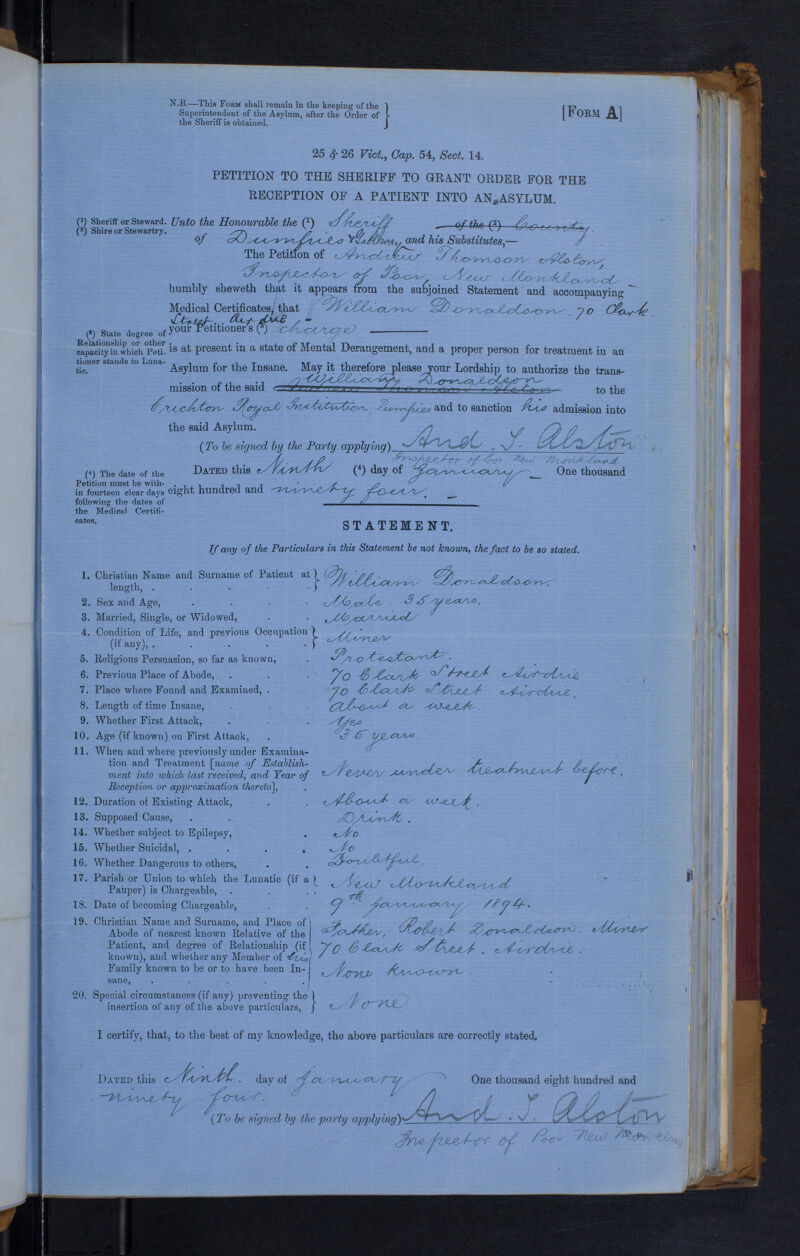 N.B.—This Form shall remain in the keeping of the
Superintendent of the Asylum, after the Order of
the Sheriff is obtained.
[Form A]
25 & 26 Vict., Cap. 54, Sect. 14.
PETITION TO THE SHERIFF TO GRANT ORDER FOR THE
RECEPTION OF A PATIENT INTO AN ASYLUM.
(¹) Sheriff or Steward.
(²) Shire or Stewartry.
Unto the Honourable the (¹) Sheriff of the (²) County
of Dumfries & Galloway and his Substitutes,—
The Petition of Andrew Thomson Alston,
Inspector of Poor, New Monkland
humbly sheweth that it appears from the subjoined Statement and accompanying
Medical Certificates, that William Donaldson. 70 Clark
Street Airdrie
(³) State degree of
Relationship or other
capacity in which Peti-
tioner stands to Luna-
tic.
your Petitioner's (³) charge.
is at present in a state of Mental Derangement, and a proper person for treatment in an
Asylum for the Insane. May it therefore please your Lordship to authorize the trans-
William Donaldson
mission of the said Andrew Thomson Alston to the
Crichton Royal Institution, Dumfries and to sanction his admission into
the said Asylum.
(To be signed by the Party applying) And. T. Alston
Inspector of Poor New Monkland
(⁴) The date of the
Petition must be with-
in fourteen clear days
following the dates of
the Medical Certifi-
cates.
Dated this Ninth (⁴) day of January One thousand
eight hundred and ninety four.
STATEMENT.
If any of the Particulars in this Statement be not known, the fact to be so stated.
1. Christian Name and Surname of Patient at
length, . William Donaldson.
2. Sex and Age, Male. 35 years.
3. Married, Single, or Widowed, Married
4. Condition of Life, and previous Occupation
(if any), . Miner
5. Religious Persuasion, so far as known, Protestant.
6. Previous Place of Abode, 70 Clark Street Airdrie
7. Place where Found and Examined, 70 Clark Street Airdrie.
8. Length of time Insane, About a week.
9. Whether First Attack, Yes
10. Age (if known) on First Attack, 35 years
11. When and where previously under Examina-
tion and Treatment [name of Establish-
ment into which last received, and Year of
Reception or approximation thereto], Never under treatment before.
12. Duration of Existing Attack, About a week.
13. Supposed Cause, Drink.
14. Whether subject to Epilepsy, No
15. Whether Suicidal, No
16. Whether Dangerous to others, Doubtful.
17. Parish or Union to which the Lunatic (if a
Pauper) is Chargeable, New Monkland
18. Date of becoming Chargeable, 9th January 1894.
19. Christian Name and Surname, and Place of
Abode of nearest known Relative of the
Patient, and degree of Relationship (if
known), and whether any Member of his
Family known to be or to have been In-
sane,
Father, Robert Donaldson. Miner
70 Clark Street. Airdrie.
None known.
20. Special circumstances (if any) preventing the
insertion of any of the above particulars, None
I certify, that, to the best of my knowledge, the above particulars are correctly stated,
Dated this Ninth. day of January One thousand eight hundred and
ninety four.
(To be signed by the party applying) And. T. Alston
Inspector of Poor New Monkland